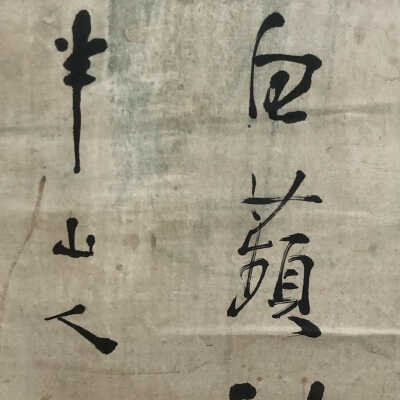 白蘋
半山人